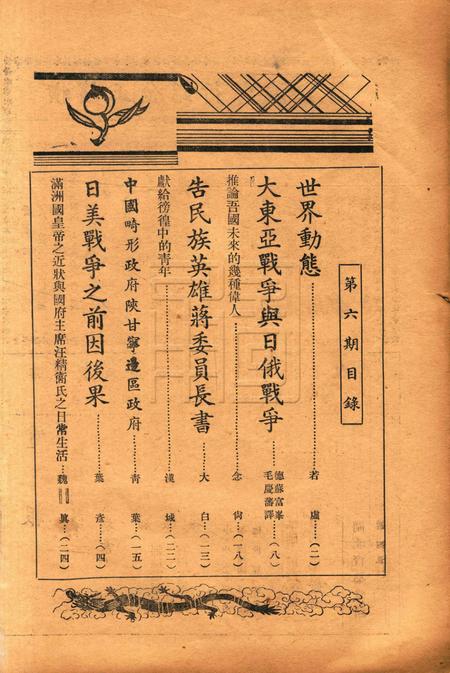 第六期目錄
世界動態……若虛…(二)
大東亞戰爭與日俄戰爭……德蘇富峯 毛慶藩譯…(八)
推論吾國未來的幾種偉人……念尙…(一八)
告民族英雄蔣委員長書……大白…(一三)
獻給徬徨中的青年……漢城…(二二)
中國畸形政府陝甘寧邊區政府……青葉…(一五)
日美戰爭之前因後果……葉彥…(四)
滿洲國皇帝之近狀與國府主席汪精衞氏之日常生活…魏眞…(二四)